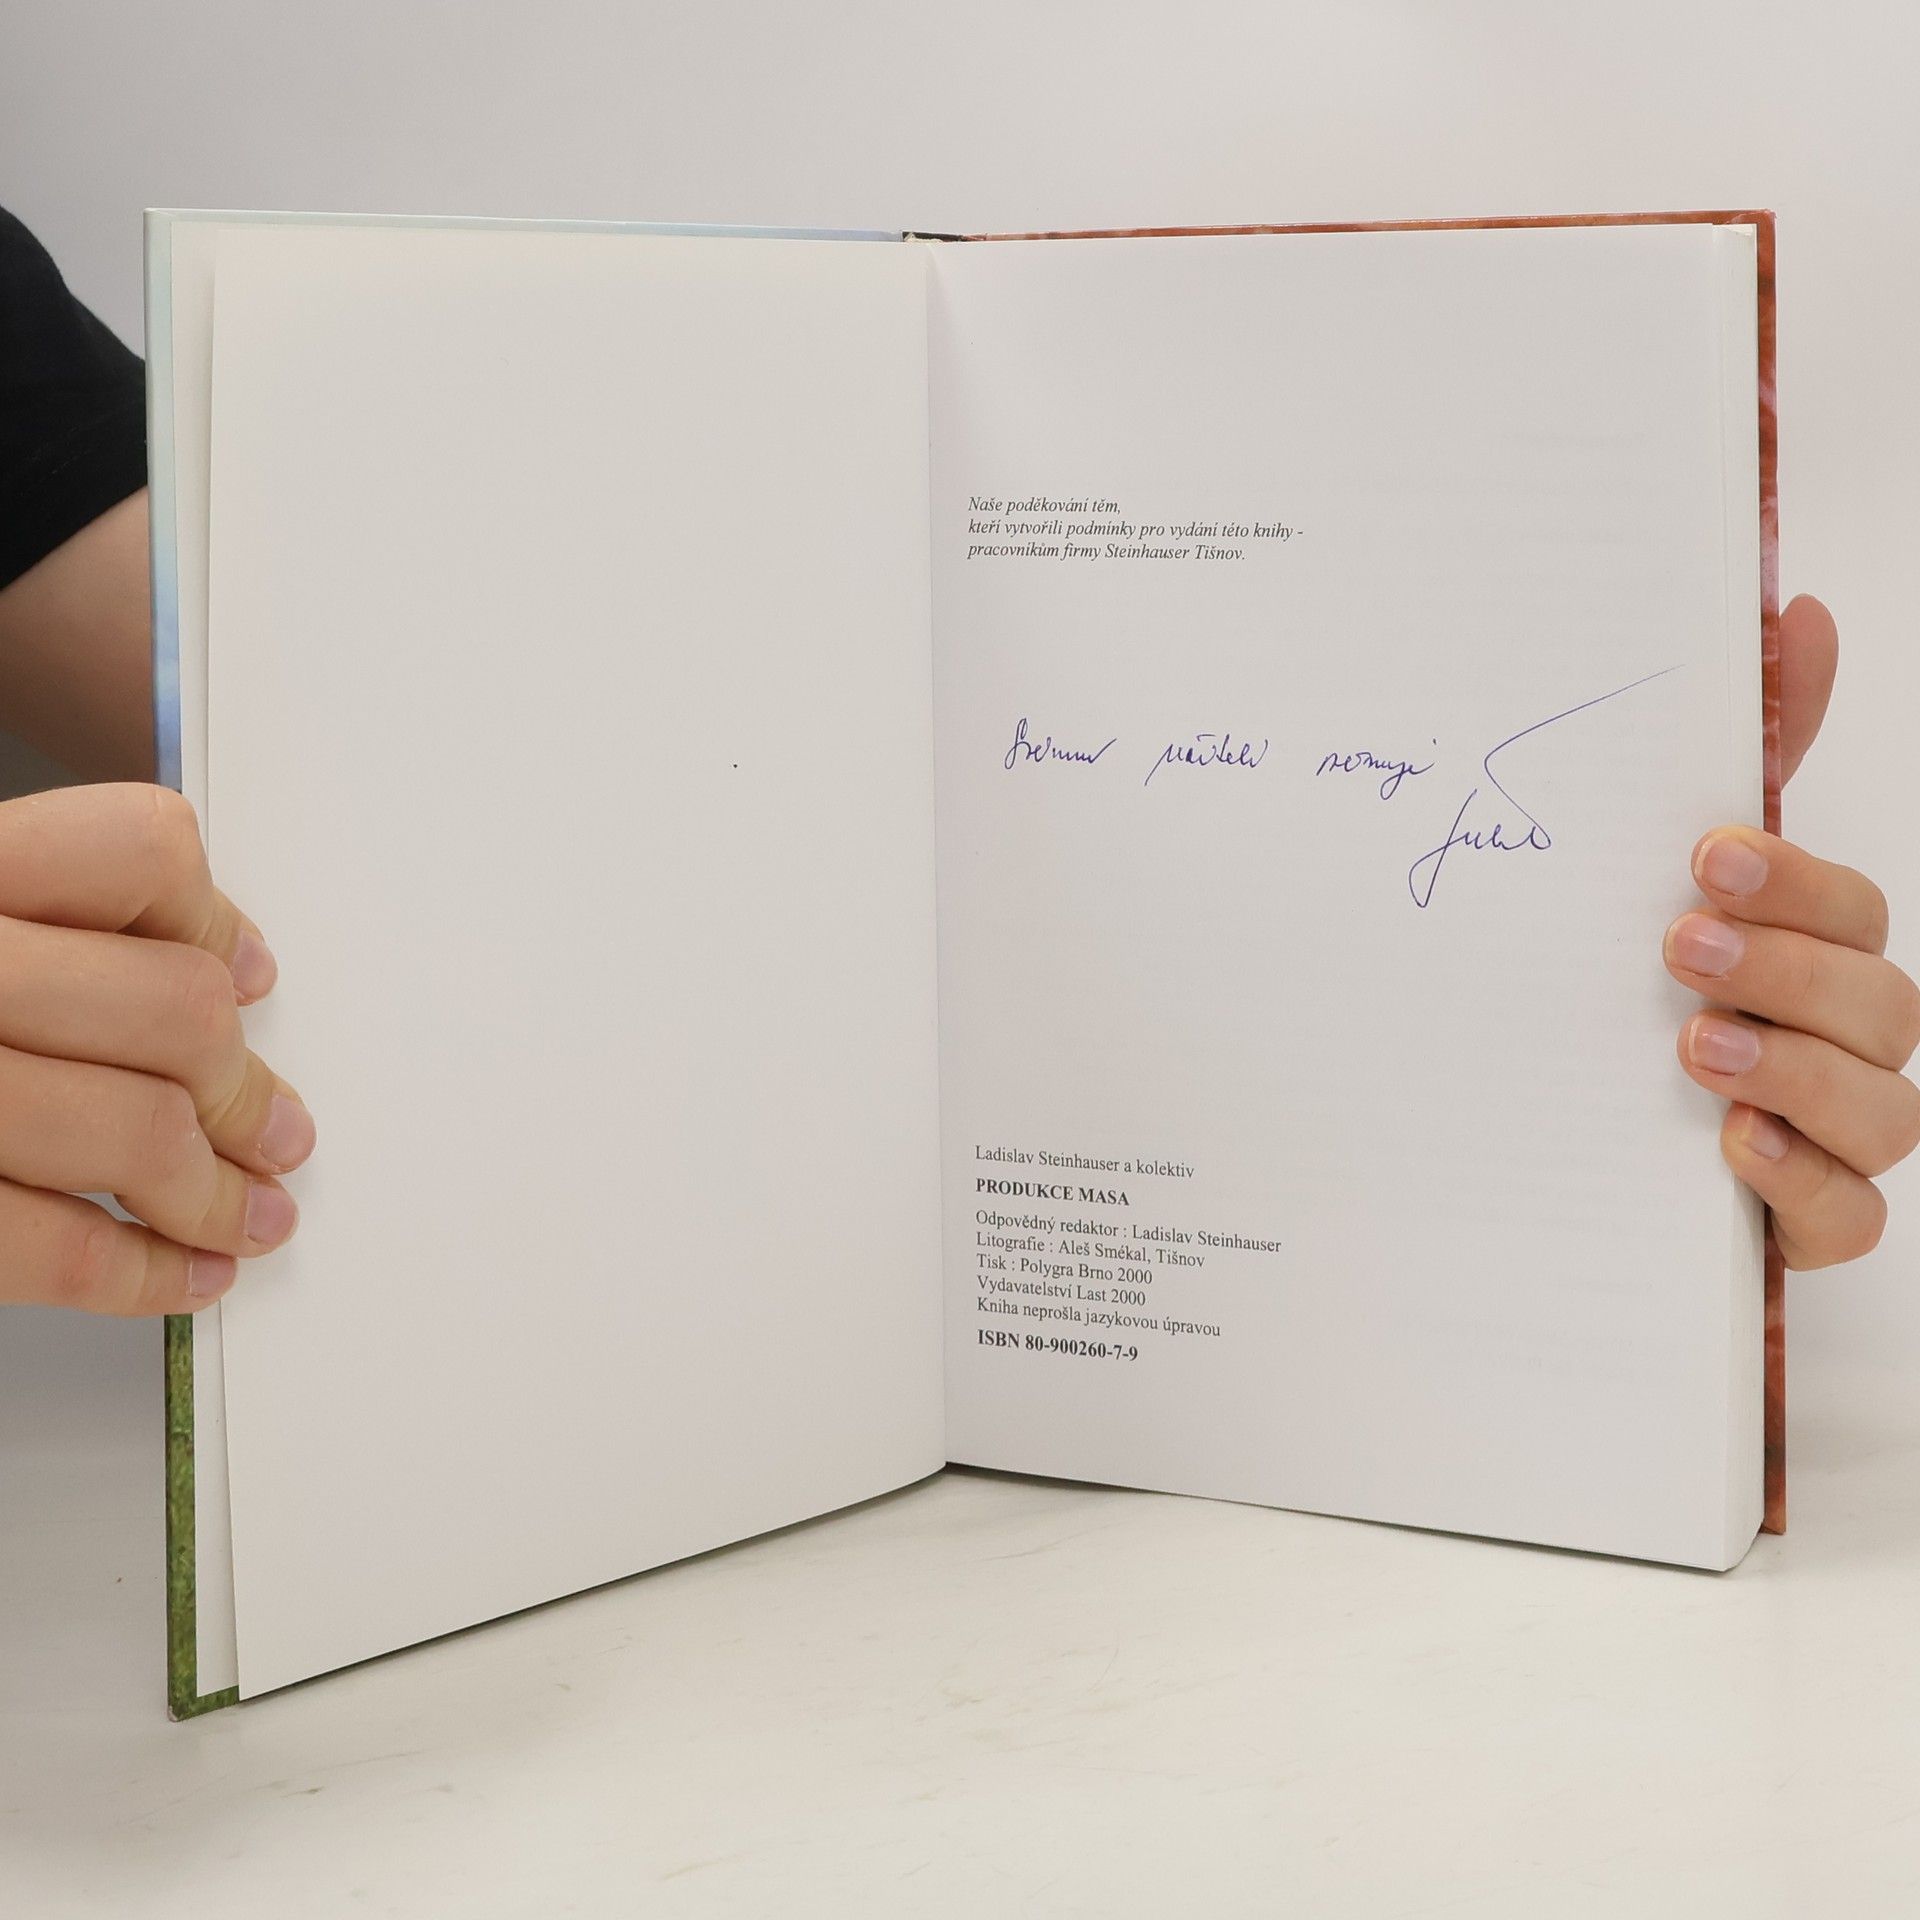 Naše poděkování těm,
kteří vytvořili podmínky pro vydání této knihy -
pracovníkům firmy Steinhauser Tišnov.
věnuje
Ladislav Steinhauser a kolektiv
PRODUKCE MASA
Odpovědný redaktor : Ladislav Steinhauser
Litografie : Aleš Smékal, Tišnov
Tisk : Polygra Brno 2000
Vydavatelství Last 2000
Kniha neprošla jazykovou úpravou
ISBN 80-900260-7-9